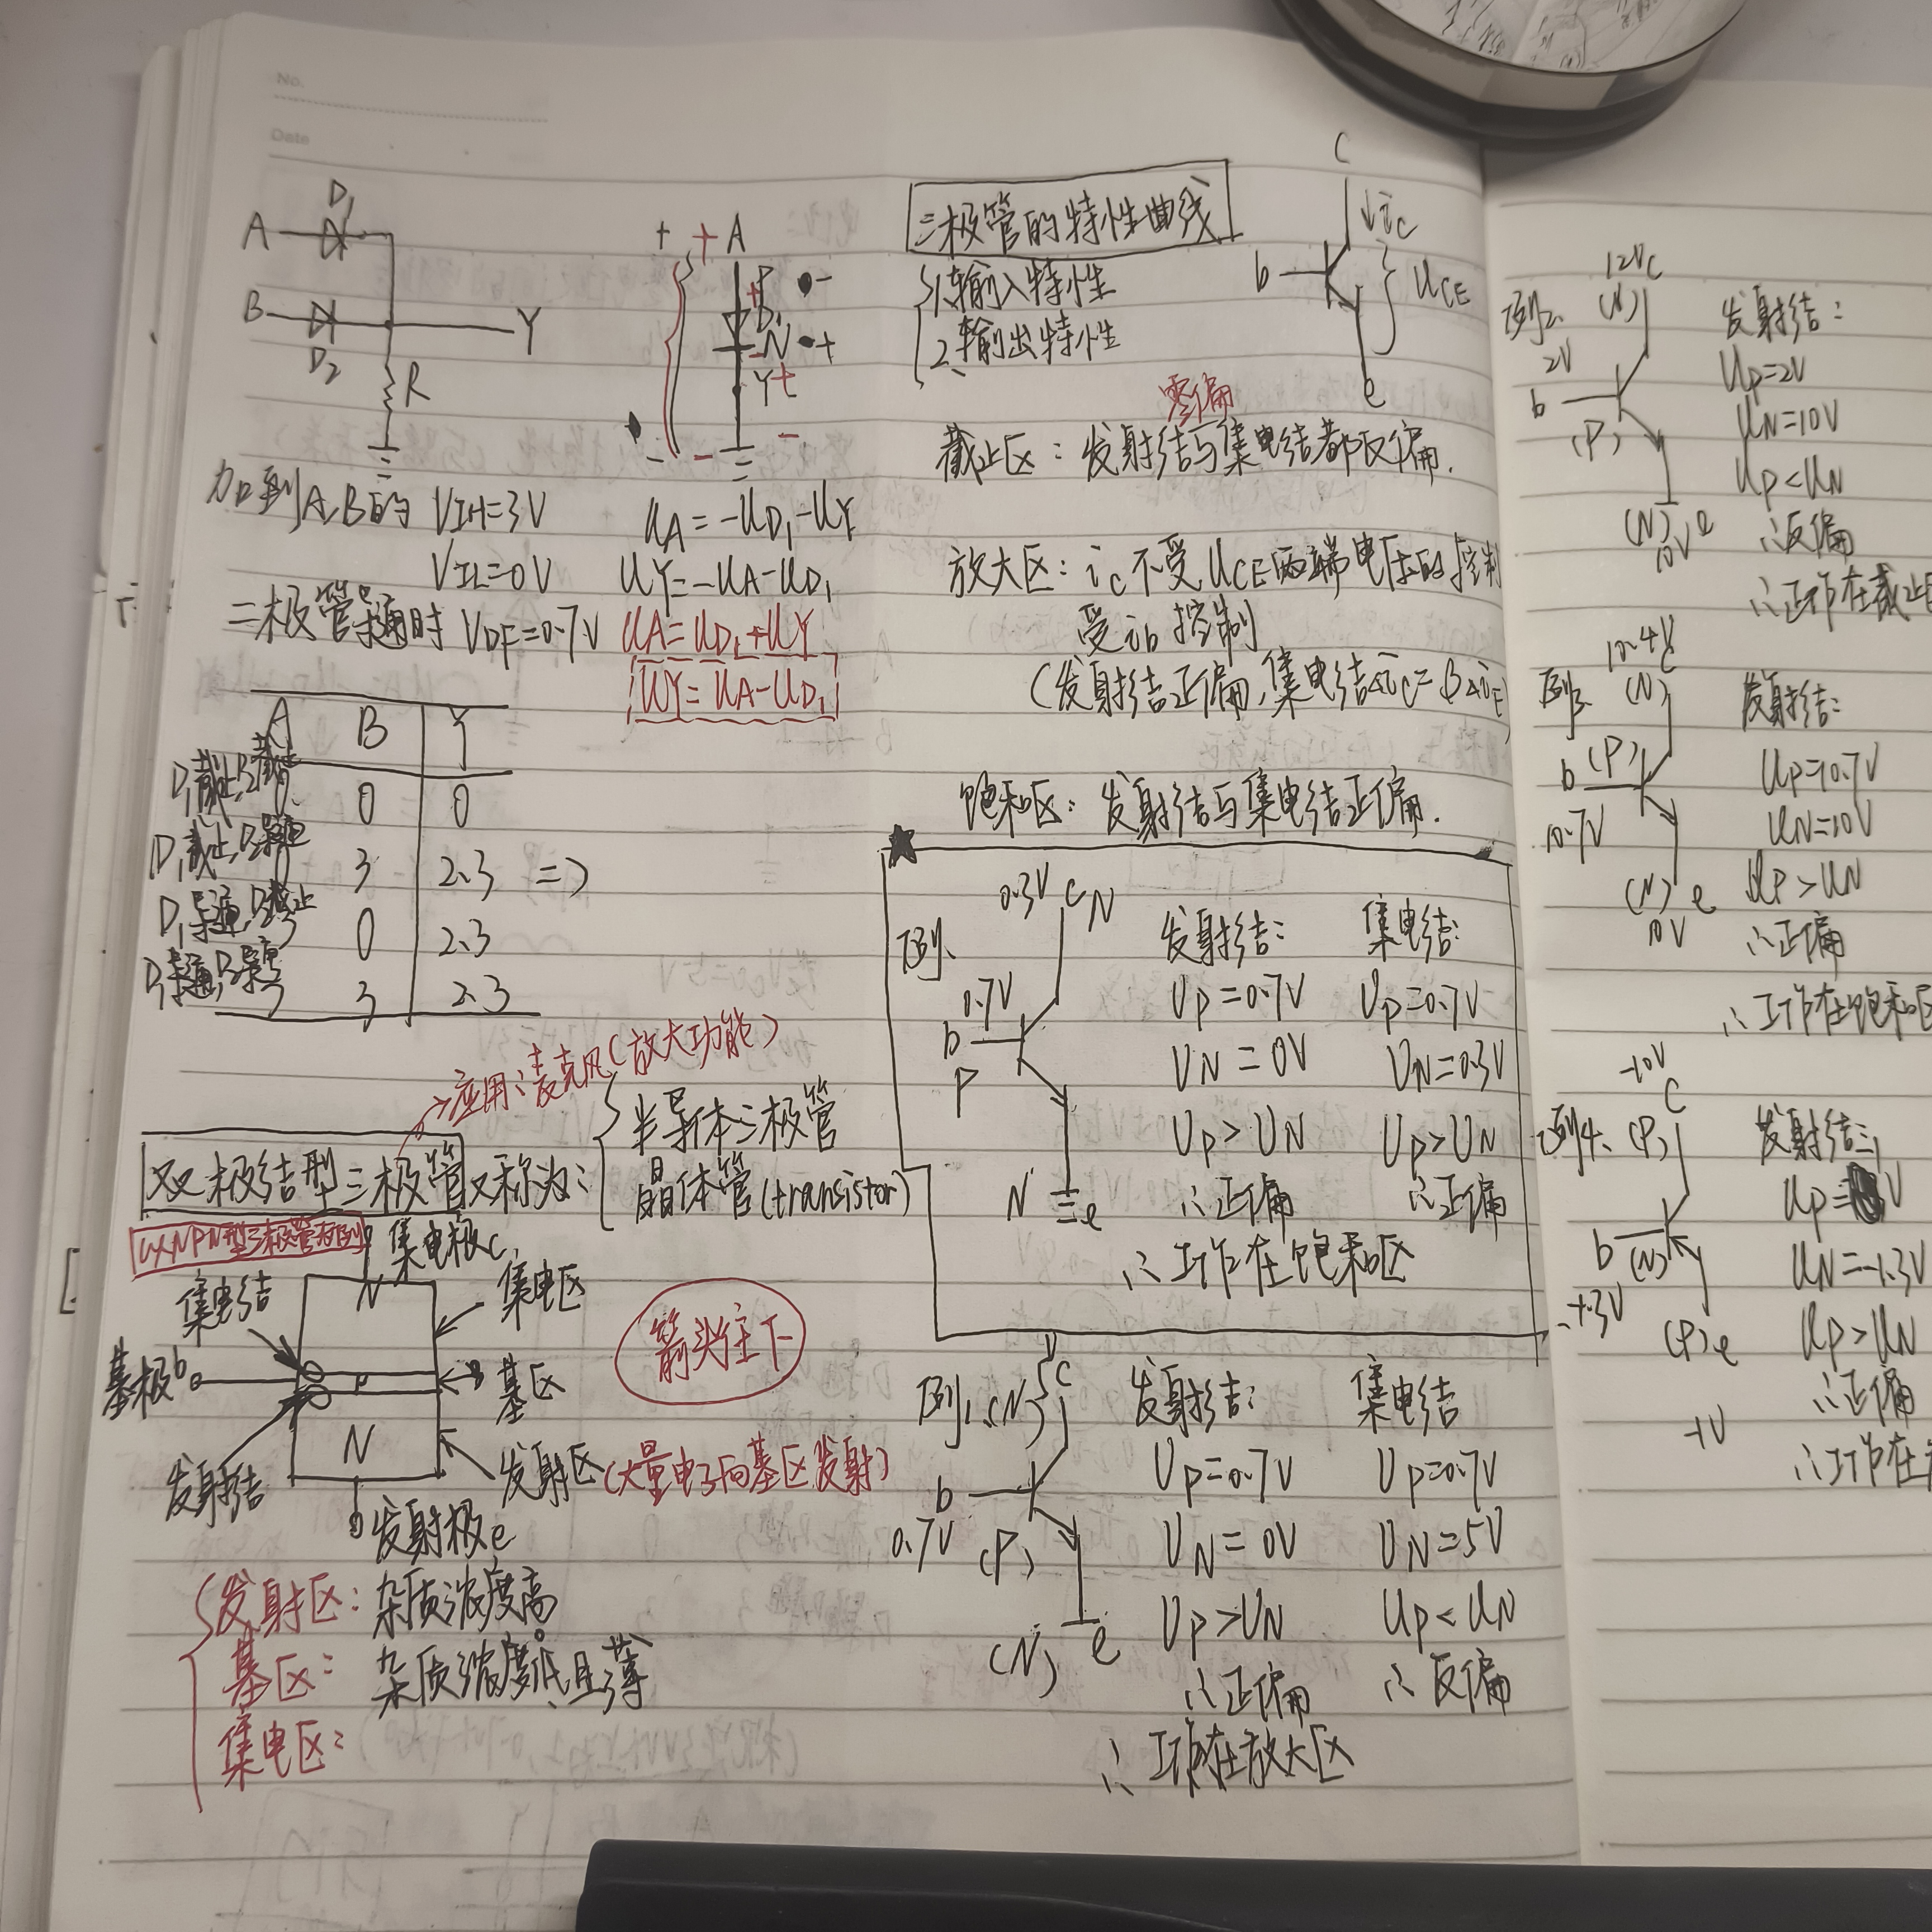 No.
Date
D1
A
B
D2
Y
R
加到A,B的 VIH=3V
VIL=0V
二极管导通时 VDF=0.7V
+ + A
P -
+ D1
- N +
Y +
- - -
UA=-UD1-UY
UY=-UA-UD1
UA=UD1+UY
UY=UA-UD1
A B Y
D1截止,D2截止
0 0
D1截止,D2导通
3 2.3 =>
D1导通,D2截止
0 2.3
D1导通,D2导通
3 2.3
→应用:麦克风(放大功能)
双极结型三极管又称为:
半导体三极管
晶体管(transistor)
以NPN型三极管为例
集电极c
集电结
N
集电区
基极b
P
基区
箭头往下
N
发射结
发射区(大量电子向基区发射)
发射极e
发射区:杂质浓度高
基区:杂质浓度低且薄
集电区:
三极管的特性曲线
1.输入特性
2、输出特性
c
↓ic
b
UCE
e
零偏
截止区:发射结与集电结都反偏.
放大区:ic不受UCE两端电压的控制
受ib控制
(发射结正偏,集电结Δic=βΔiE)
饱和区:发射结与集电结正偏.
★
0.3V c N
例、
0.7V
b
P
N e
发射结: 集电结:
UP=0.7V UP=0.7V
UN=0V UN=0.3V
UP>UN UP>UN
∴正偏 ∴正偏
∴工作在饱和区
例1、(N) c
b
0.7V (P)
(N) e
发射结: 集电结
UP=0.7V UP=0.7V
UN=0V UN=5V
UP>UN UP<UN
∴正偏 ∴反偏
∴工作在放大区
12V c
例2、 (N)
2V
b
(P)
(N) e
10V
发射结:
UP=2V
UN=10V
UP<UN
∴反偏
∴工作在截止区
10.4V
c
例3、 (N)
b (P)
10.7V
(N) e
10V
发射结:
UP=10.7V
UN=10V
UP>UN
∴正偏
∴工作在饱和区
-10V
c
例4、(P)
b (N)
-1.3V
(P) e
-1V
发射结:
UP= V
UN=-1.3V
UP>UN
∴正偏
∴工作在